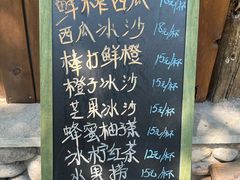 鲜榨西瓜 18元/杯
西瓜冰沙 18元/杯
棒打鲜橙 15元/杯
橙子冰沙 15元/杯
芒果冰沙 15元/杯
蜂蜜柚子茶 15元/杯
冰柠红茶 12元/杯
水果捞 15元/杯